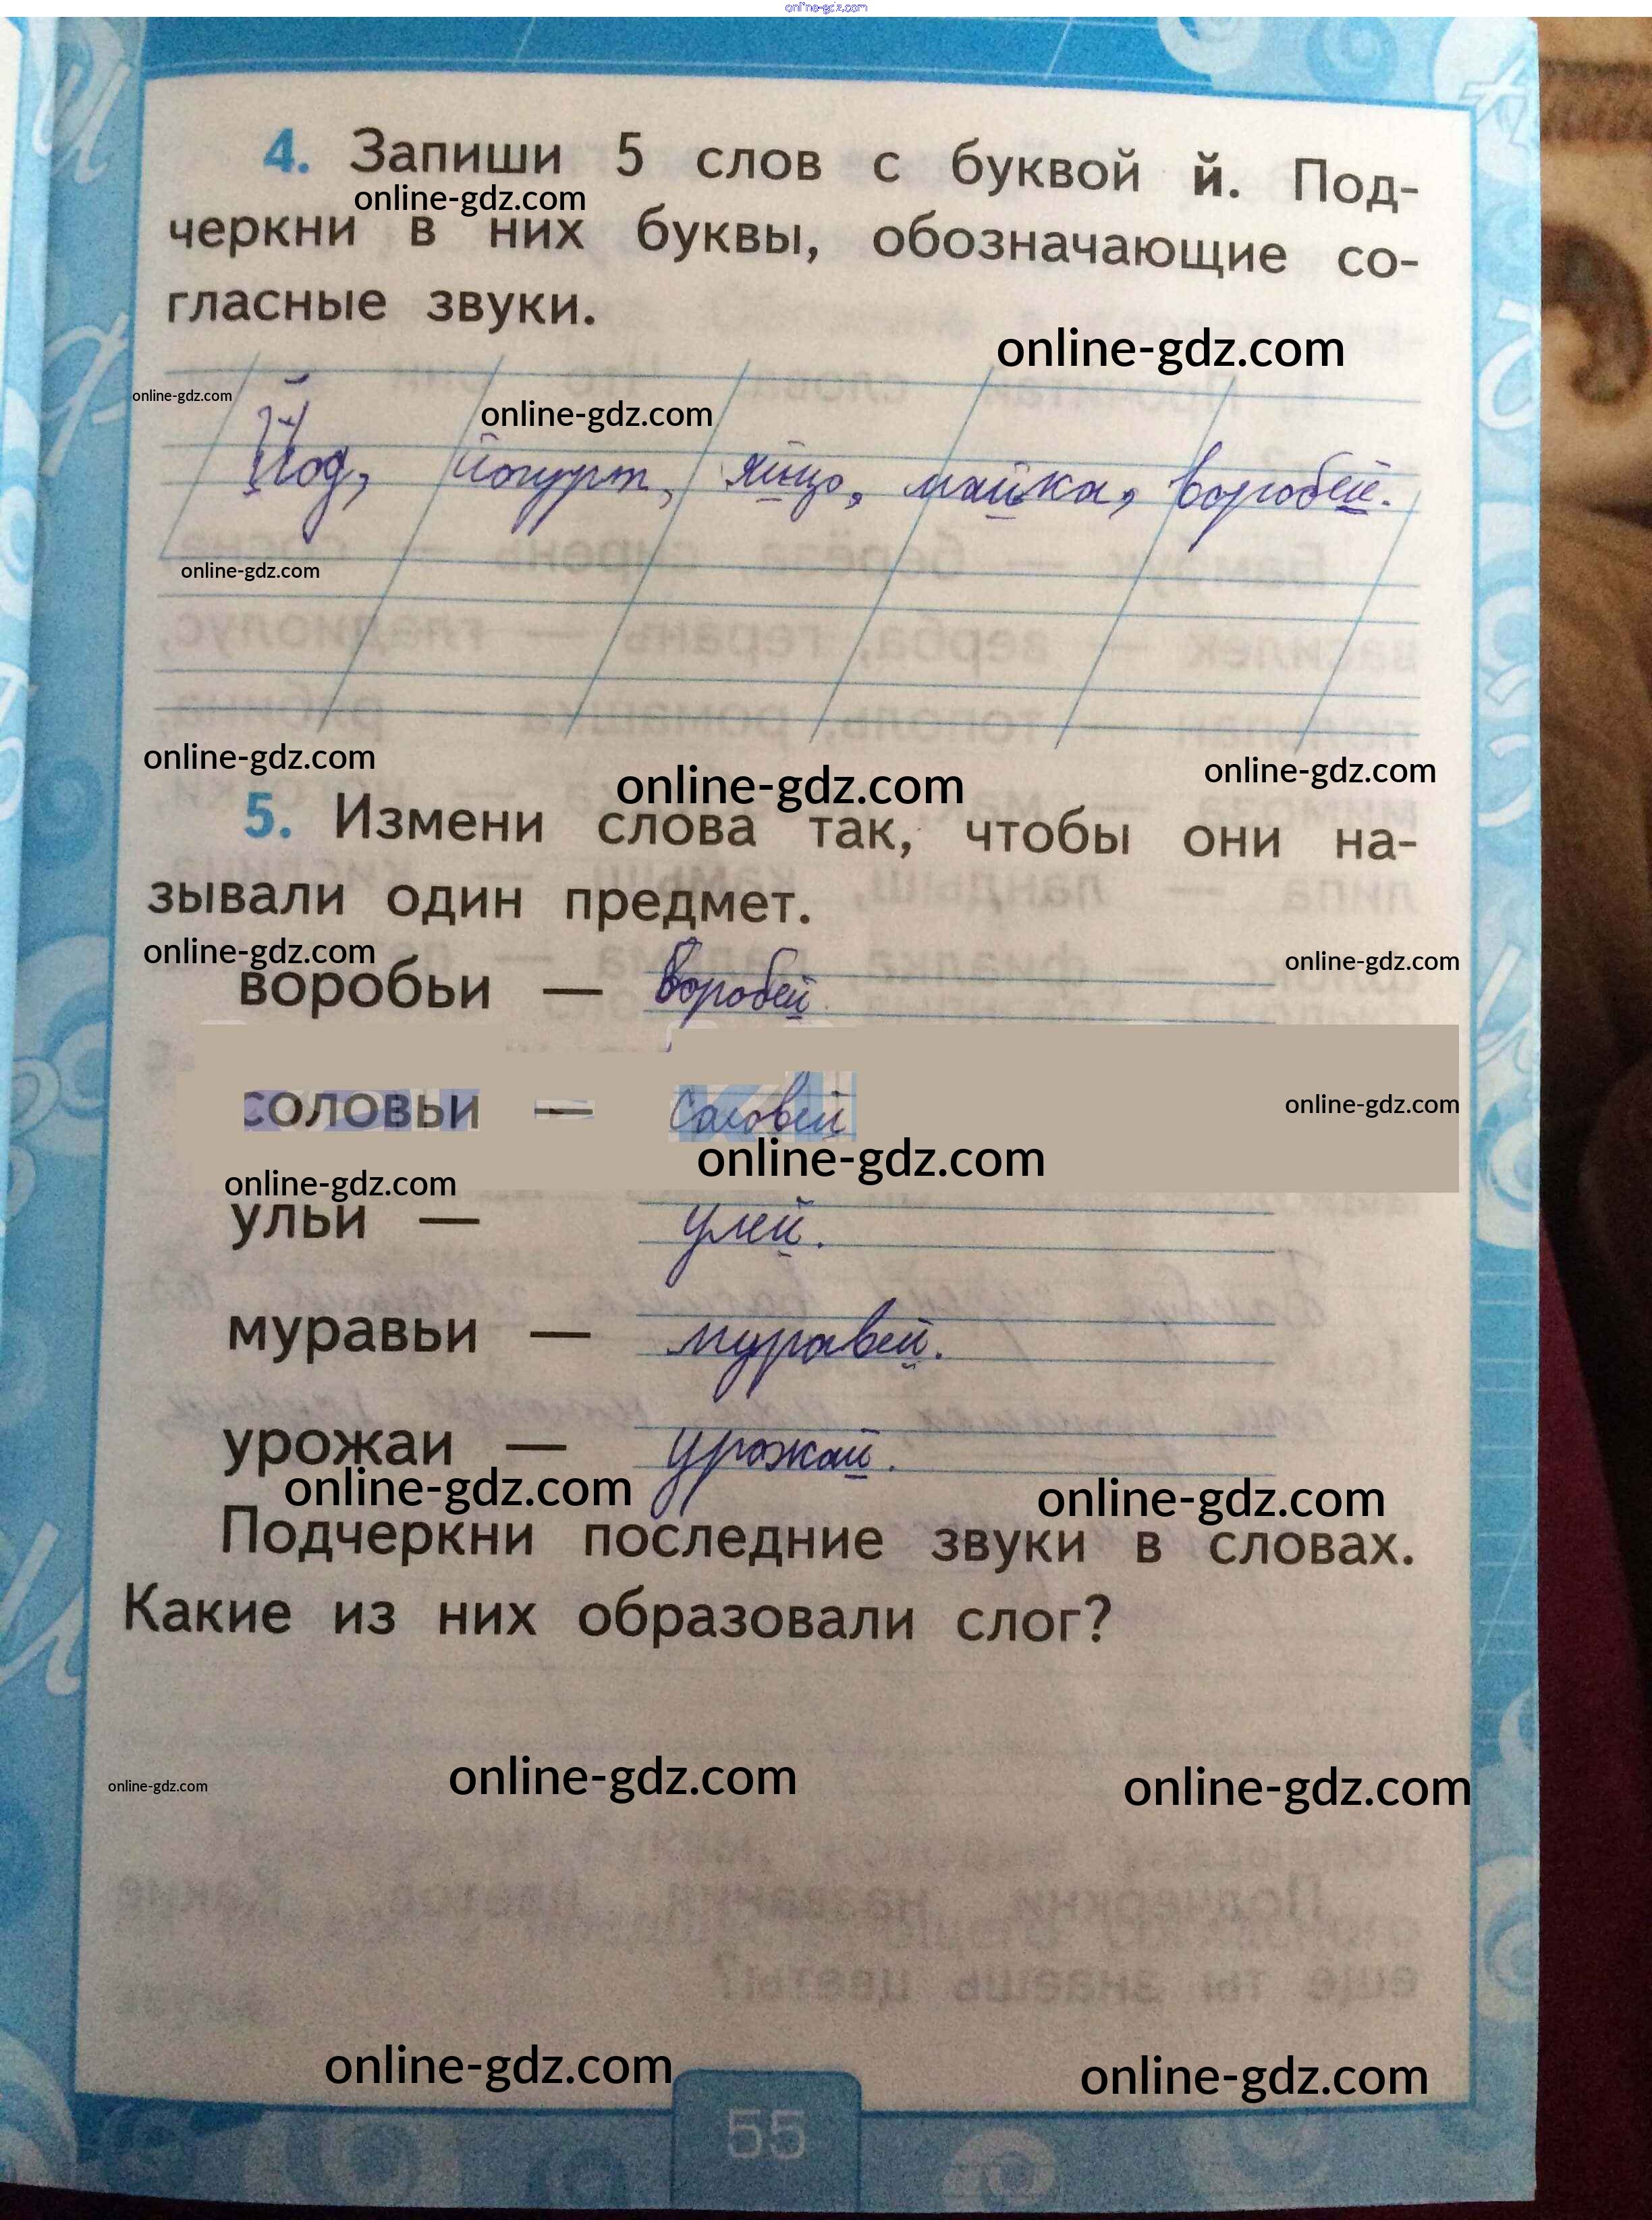 online-gdz.com
4. Запиши 5 слов с буквой й. Под-
online-gdz.com
черкни в них буквы, обозначающие со-
гласные звуки.
online-gdz.com
online-gdz.com
online-gdz.com
Йод, йогурт, яйцо, майка, воробей.
online-gdz.com
online-gdz.com
online-gdz.com
online-gdz.com
5. Измени слова так, чтобы они на-
зывали один предмет.
online-gdz.com
online-gdz.com
воробьи — воробей
соловьи — соловей
online-gdz.com
online-gdz.com
online-gdz.com
ульи — улей.
муравьи — муравей.
урожаи — урожай.
online-gdz.com
online-gdz.com
Подчеркни последние звуки в словах.
Какие из них образовали слог?
online-gdz.com
online-gdz.com
online-gdz.com
online-gdz.com
online-gdz.com
55